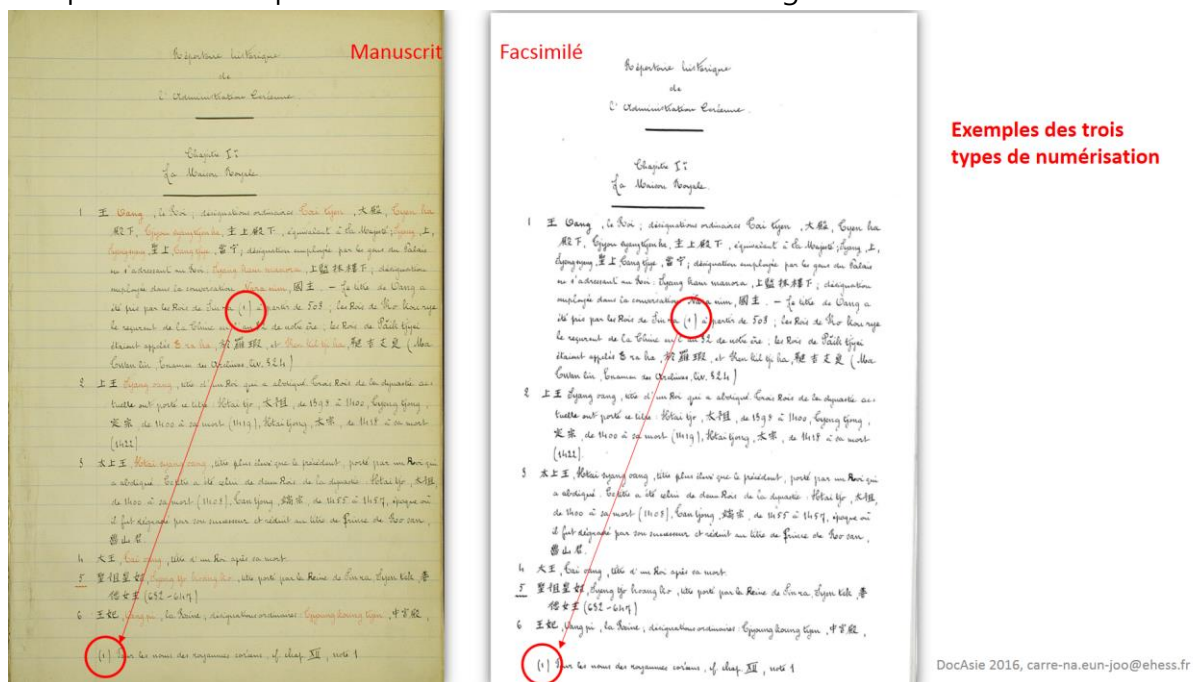 Manuscrit
Répertoire historique
de
L'Administration Coréenne
Chapitre I:
La Maison Royale
1 王 Oang, le Roi; désignations ordinaires Tai tyen, 大殿, Tyen ha
殿下, 主上殿下, équivalent à Sa Majesté; Syang, 上,
當宁; désignation employée par les gens du Palais
en s'adressant au Roi: Syang kam manora, 上監抹樓下; désignation
employée dans la conversation Nara nim, 國主. – Le titre de Oang a
été pris par les Rois de Sin ra (1) à partir de 508; les Rois de Ko kou rye
le reçurent de la Chine en l'an 32 de notre ère; les Rois de Păik tjyei
étaient appelés E ra ha, 於羅瑕, et Ken kil tji ha, 鞬吉支 (Ma
Toan lin, Examen des Archives, liv. 324)
2 上王 Syang oang, titre d'un Roi qui a abdiqué. Trois Rois de la dynastie ac-
tuelle ont porté ce titre: Htai tjo, 太祖, de 1398 à 1400, Tyeng tjong,
定宗, de 1400 à sa mort (1419), Htai tjong, 太宗, de 1418 à sa mort
(1422)
3 太上王, Htai syang oang, titre plus élevé que le précédent, porté par un Roi qui
a abdiqué. Ce titre a été celui de deux Rois de la dynastie: Htai tjo, 太祖,
de 1400 à sa mort (1408), Tan tjong, 端宗, de 1455 à 1457, époque où
il fut dégradé par son successeur et réduit au titre de Prince de Ro san,
魯山君.
4 大王, Tai oang, titre d'un Roi après sa mort.
5 聖祖皇姑, Syeng tjo hoang ko, titre porté par la Reine de Sin ra, Syen tek, 善
德女王 (632-647)
6 王妃, Oang pi, la Reine; désignations ordinaires: Tjyoung koung tyen, 中宮殿,
(1) Pour les noms des royaumes coréens, cf. chap. XII, note 1
Facsimilé
Répertoire historique
de
L'Administration Coréenne.
Chapitre I:
La Maison Royale.
1 王 Oang, le Roi; désignations ordinaires Tai tyen, 大殿, Tyen ha
殿下, 主上殿下, équivalent à Sa Majesté; Syang, 上,
當宁; désignation employée par les gens du Palais
en s'adressant au Roi: Syang kam manora, 上監抹樓下; désignation
employée dans la conversation Nara nim, 國主. – Le titre de Oang a
été pris par les Rois de Sin ra (1) à partir de 508; les Rois de Ko kou rye
le reçurent de la Chine en l'an 32 de notre ère; les Rois de Păik tjyei
étaient appelés E ra ha, 於羅瑕, et Ken kil tji ha, 鞬吉支 (Ma
Toan lin, Examen des Archives, liv. 324)
2 上王 Syang oang, titre d'un Roi qui a abdiqué. Trois Rois de la dynastie ac-
tuelle ont porté ce titre: Htai tjo, 太祖, de 1398 à 1400, Tyeng tjong,
定宗, de 1400 à sa mort (1419), Htai tjong, 太宗, de 1418 à sa mort
(1422).
3 太上王, Htai syang oang, titre plus élevé que le précédent, porté par un Roi qui
a abdiqué. Ce titre a été celui de deux Rois de la dynastie: Htai tjo, 太祖,
de 1400 à sa mort (1408), Tan tjong, 端宗, de 1455 à 1457, époque où
il fut dégradé par son successeur et réduit au titre de Prince de Ro san,
魯山君.
4 大王, Tai oang, titre d'un Roi après sa mort.
5 聖祖皇姑, Syeng tjo hoang ko, titre porté par la Reine de Sin ra, Syen tek, 善
德女王 (632-647)
6 王妃, Oang pi, la Reine; désignations ordinaires: Tjyoung koung tyen, 中宮殿,
(1) Pour les noms des royaumes coréens, cf. chap. XII, note 1
Exemples des trois
types de numérisation
DocAsie 2016, carre-na.eun-joo@ehess.fr